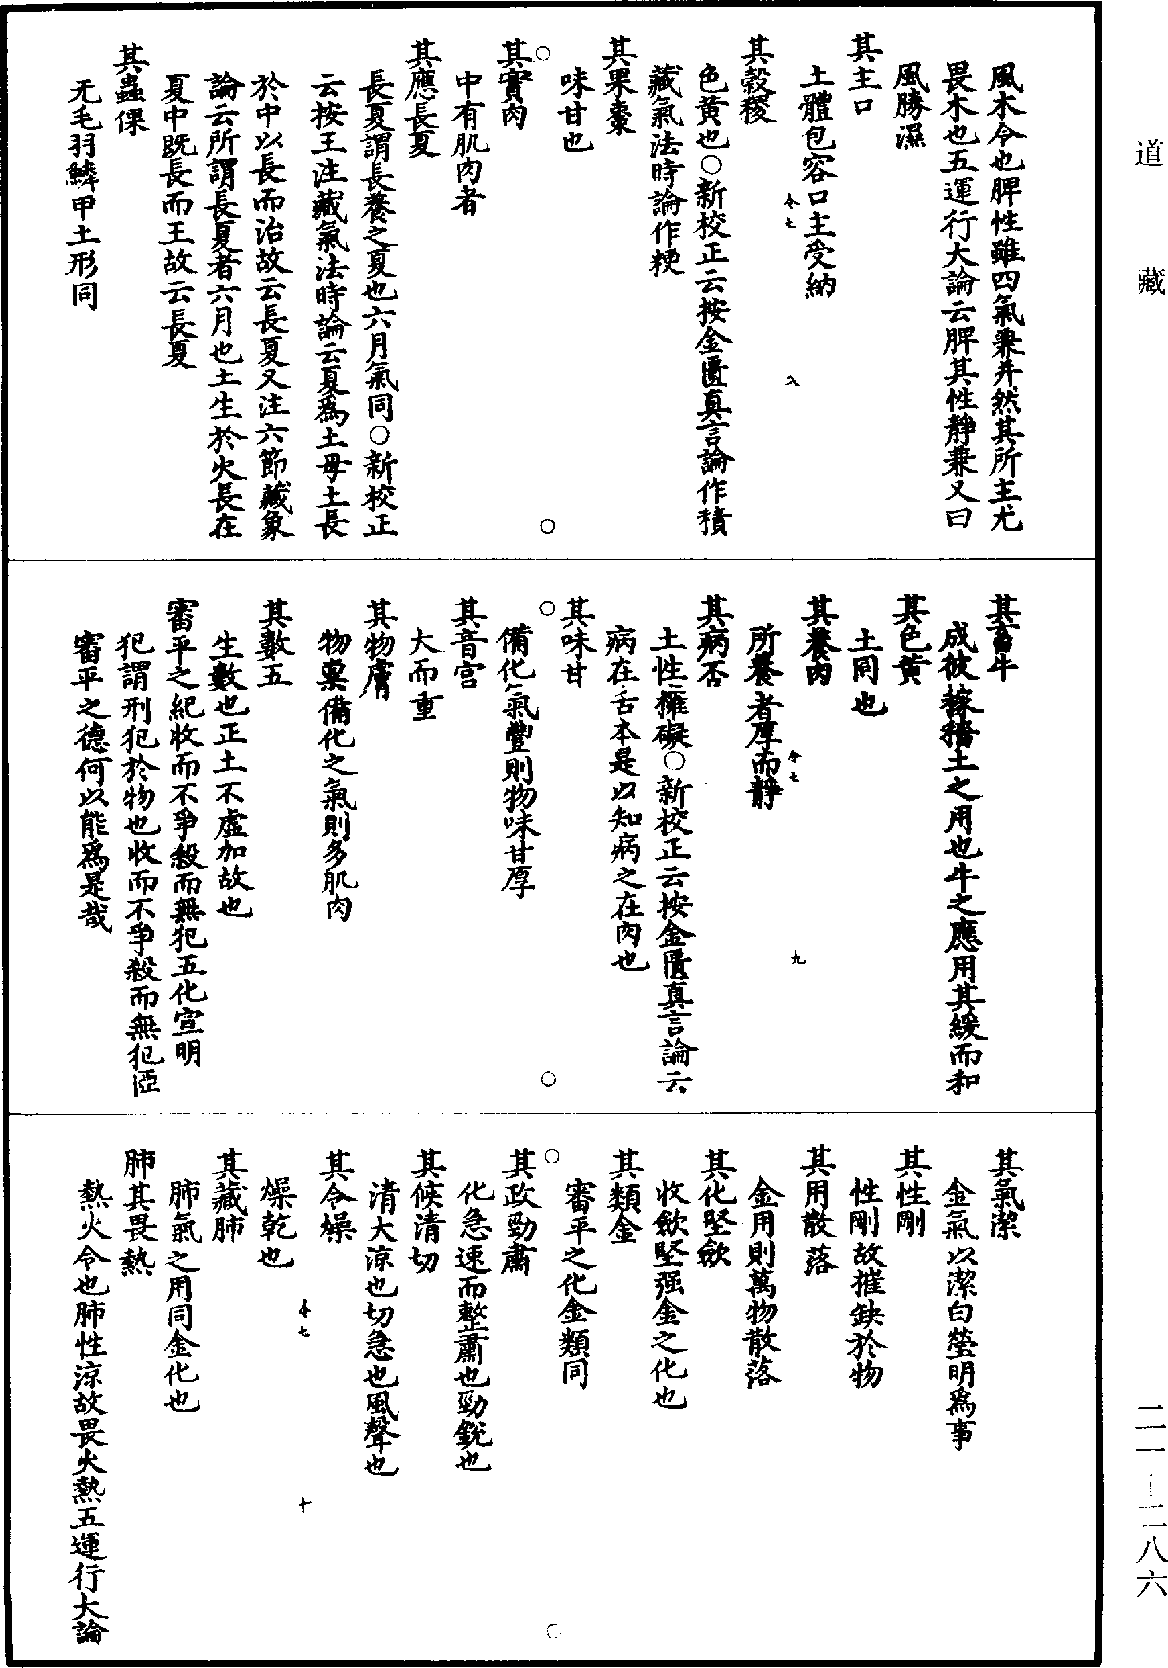 道藏
風木令也脾性雖四氣兼并然其所主尤
畏木也五運行大論云脾其性靜兼又曰
風勝濕
其主口
土體包容口主受納
令七
八
其穀稷
色黃也○新校正云按金匱真言論作稷
藏氣法時論作粳
其果棗
味甘也
其實肉
中有肌肉者
其應長夏
長夏謂長養之夏也六月氣同○新校正
云按王注藏氣法時論云夏爲土母土長
於中以長而治故云長夏又注六節藏象
論云所謂長夏者六月也土生於火長在
夏中既長而王故云長夏
其蟲倮
无毛羽鱗甲土形同
其畜牛
成彼稼穡土之用也牛之應用其緩而和
其色黃
土同也
其養肉
所養者厚而靜
令七
九
其病否
土性擁礙○新校正云按金匱真言論云
病在舌本是以知病之在肉也
其味甘
備化氣豐則物味甘厚
其音宮
大而重
其物膚
物稟備化之氣則多肌肉
其數五
生數也正土不虛加故也
審平之紀收而不爭殺而無犯五化宣明
犯謂刑犯於物也收而不爭殺而無犯匪
審平之德何以能爲是哉
其氣潔
金氣以潔白瑩明爲事
其性剛
性剛故摧缺於物
其用散落
金用則萬物散落
其化堅斂
收斂堅强金之化也
其類金
審平之化金類同
其政勁肅
化急速而整肅也勁銳也
其候清切
清大涼也切急也風聲也
其令燥
燥乾也
令七
十
其藏肺
肺氣之用同金化也
肺其畏熱
熱火令也肺性涼故畏火熱五運行大論
二一—二八六